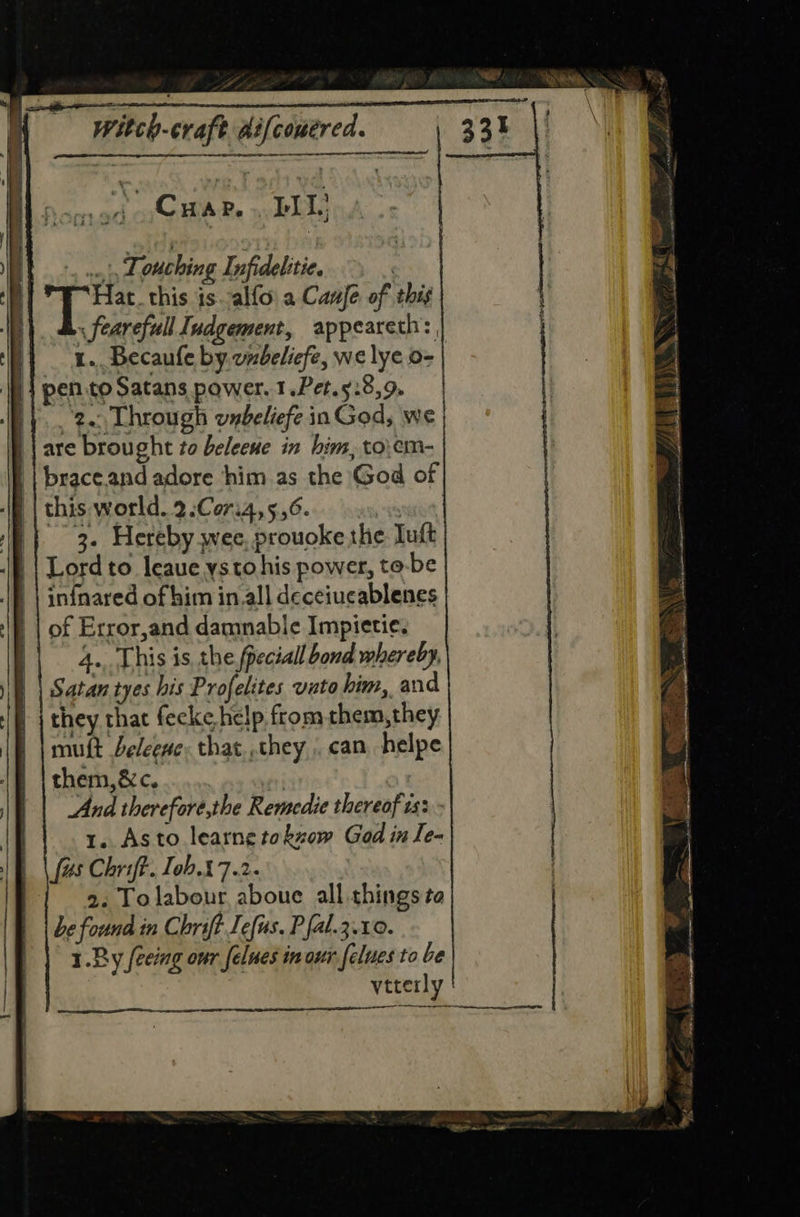 Witch-craft diſcouered. 331
CHAP. III.
Touching Infidelitie.
THat this is alſo a Cauſe of this
fearefull Iudgement, appeareth:
1. Becauſe by vnbeliefe, we lye o-
pen to Satans power. 1.Pet.5.8,9.
2. Through vnbeliefe in God, we
are brought to beleeue in him, to em-
brace and adore him as the God of
this world. 2.Cor.4,5,6.
3. Hereby wee prouoke the Iuſt
Lord to leaue vs to his power, to be
inſnared of him in all deceiueablenes
of Error, and damnable Impietie.
4. This is the ſpeciall bond whereby
Satan tyes his Proſelites vnto him, and
they that ſeeke help from them, they
muſt beleeue that they can helpe
them, &c.
And therefore, the Remedie thereof is:
1. As to learne to know God in Ie-
ſus Chriſt. Ioh.17.2.
2. To labour aboue all things to
be found in Chriſt Ieſus. Pſal.3.10.
1. By ſeeing our ſelues in our ſelues to be
vtterly